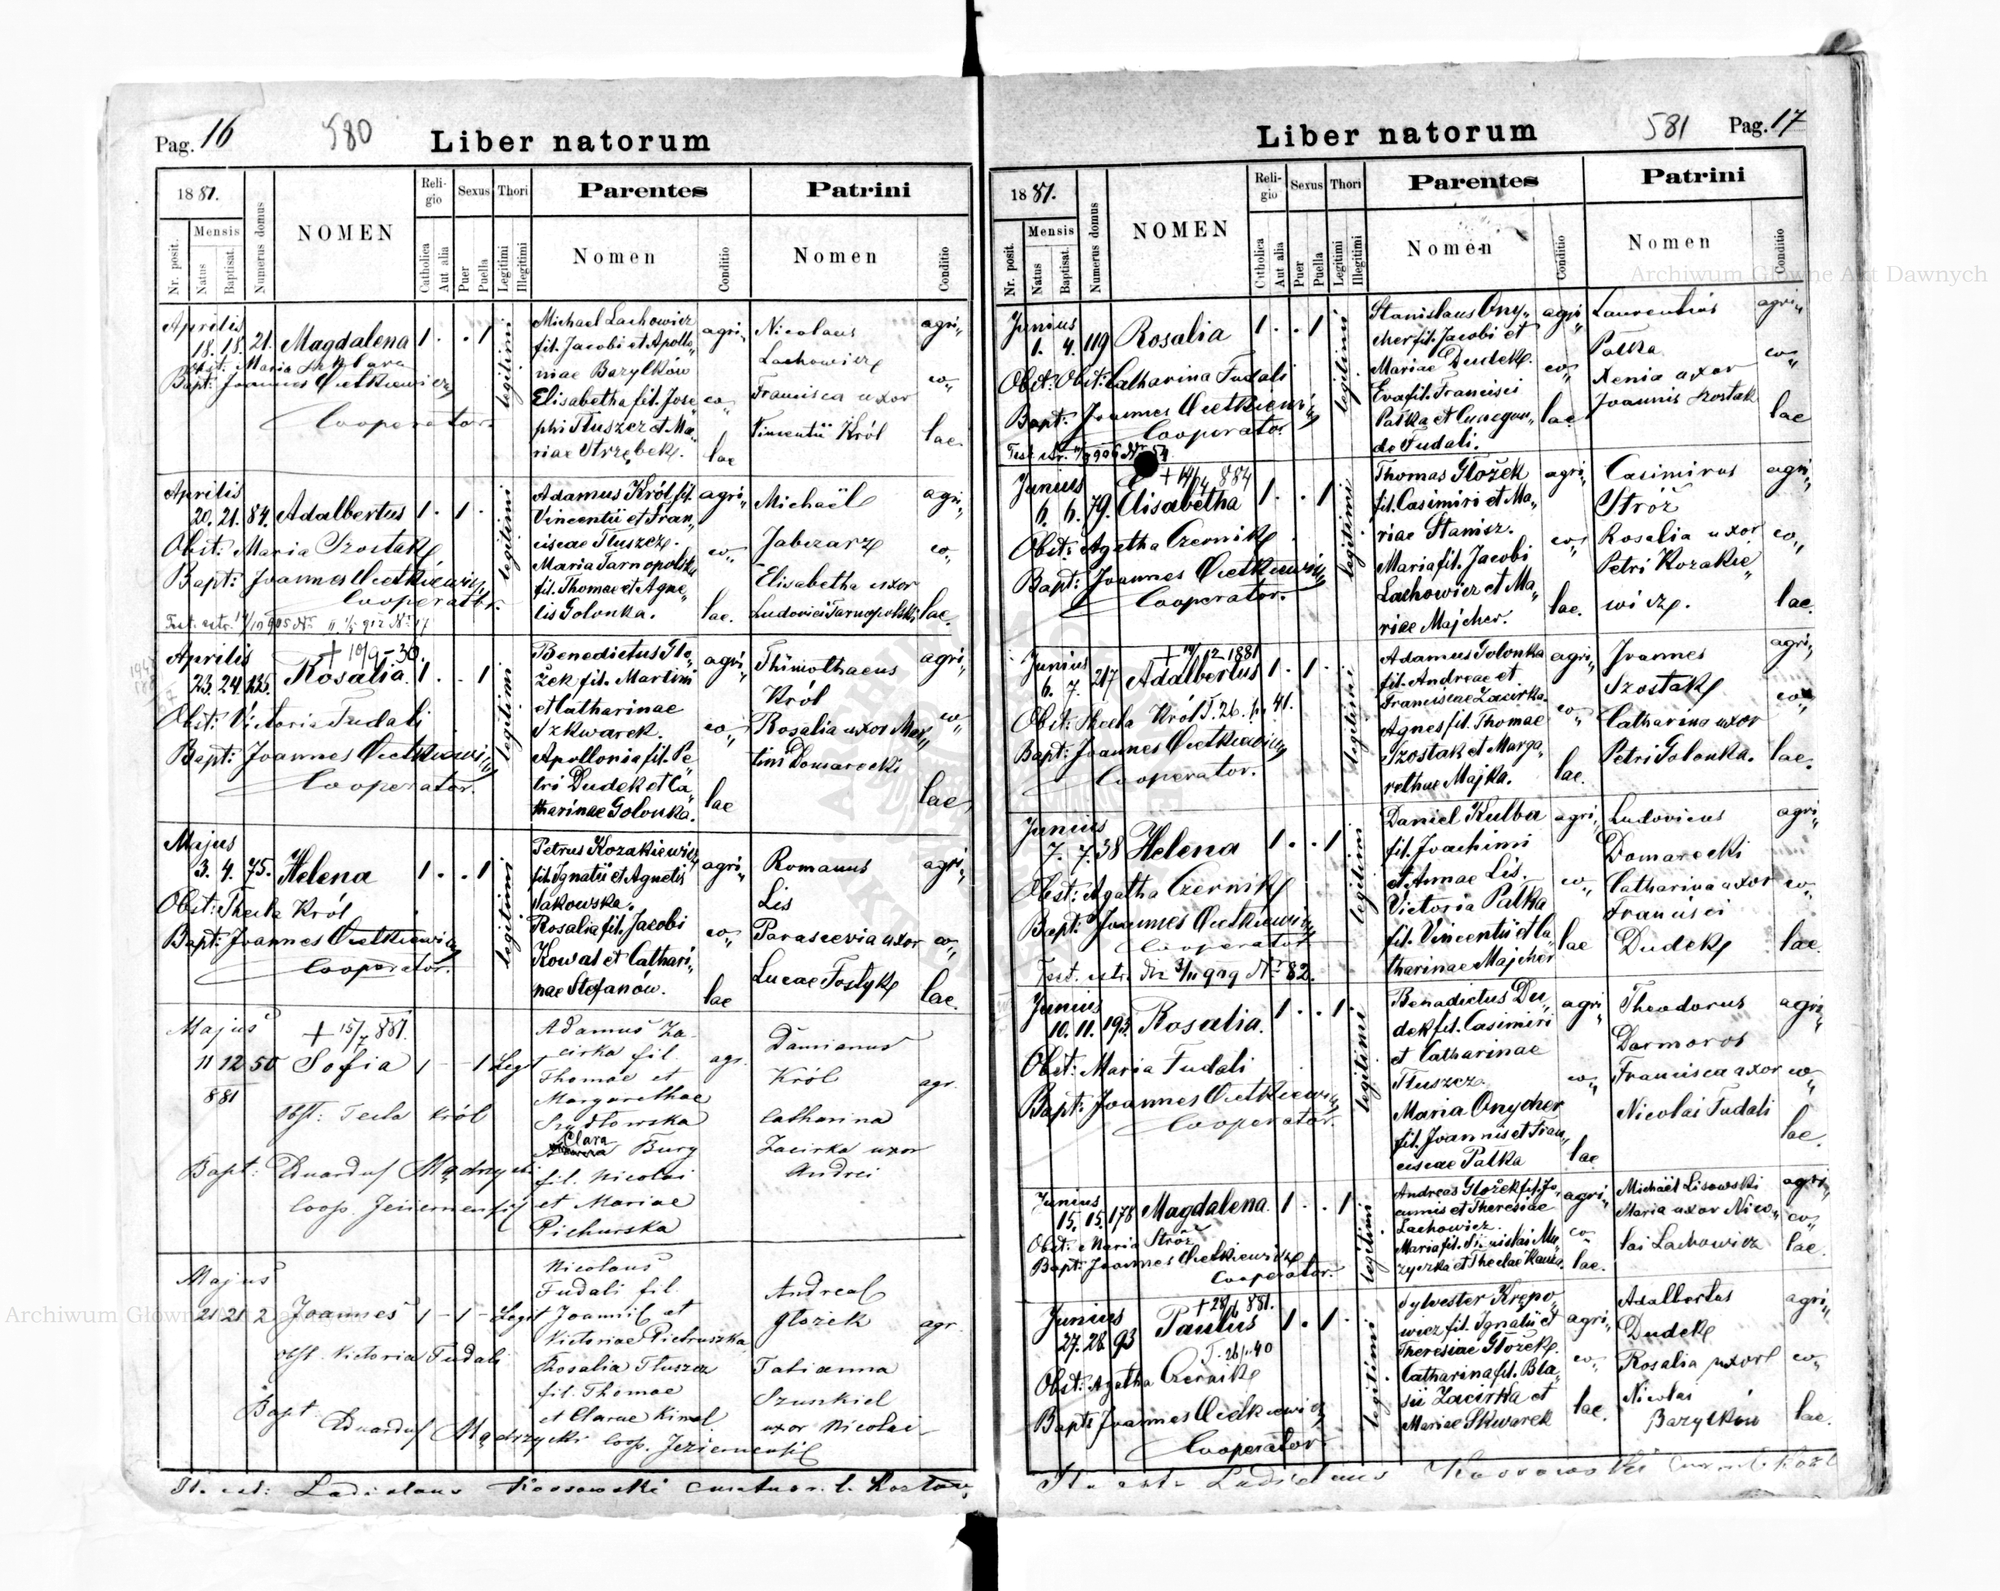 Pag. 16
580
Liber natorum
1881.
Mensis
Nr. posit.
Natus
Baptisat.
Numerus domus
NOMEN
Religio
Catholica
Aut alia
Sexus
Puer
Puella
Thori
Legitimi
Illegitimi
Parentes
Nomen
Conditio
Patrini
Nomen
Conditio
Aprilis
18. 18. 21. Magdalena 1 . . 1 legitimi
Bapt: Joannes Cietkiewicz
Cooperator.
Michael Lachowicz
fil. Jacobi et Apollo„
niae Barylków
Elisabetha fil. Jose„
phi Tłuszcz et Ma„
riae Strzębek.
agri„
co„
lae
Nicolaus
Lachowicz
Francisca uxor
Vincentii Król
agri„
co„
lae
Aprilis
20. 21. 84. Adalbertus 1 . 1 . legitimi
Obst: Maria Szostak
Bapt: Joannes Cietkiewicz
Cooperator.
Adamus Król fil.
Vincentii et Fran„
ciscae Tłuszcz.
Maria Tarnopolska
fil. Thomae et Agne„
tis Golonka.
agri„
co„
lae.
Michaël
Jabczarz
Elisabetha uxor
Ludovici Tarnopolski
agri„
co„
lae.
Aprilis
+ 10/9-30.
23. 24. 135. Rosalia. 1 . . 1 legitimi
Obst: Victoria Fudali
Bapt: Joannes Cietkiewicz
Cooperator.
Benedictus Gło„
żek fil. Martini
et Catharinae
Szkwarek.
Apollonia fil. Pe„
tri Dudek et Ca„
tharinae Golonka.
agri„
co„
lae
Thimothaeus
Król
Rosalia uxor Mar„
tini Domarecki
agri„
co„
lae,
Majus
3. 4. 75. Helena 1 . . 1 legitimi
Obst: Thecla Król
Bapt: Joannes Cietkiewicz
Cooperator.
Petrus Kozakiewicz
fil. Ignatii et Agnetis
Pakowska.
Rosalia fil. Jacobi
Kowal et Cathari„
nae Stefanów.
agri„
co„
lae
Romanus
Lis
Parascevia uxor
Lucae Fostyk
agri„
co„
lae.
Majus
+ 15/7 881.
11 12 50 Sofia 1 - - 1 Legt
881
Obst: Tecla Król
Bapt: Eduardus Mądrzycki
coop. Jeziernensis
Adamus Za„
cirka fil.
Thomae et
Margarethae
Szydłowska
Clara Bury
fil. Nicolai
et Mariae
Pichurska
agr.
Damianus
Król
Catharina
Zacirka uxor
Andrei
agr.
Majus
21 21 2 Joannes 1 - 1 - Legt
obst. Victoria Fudali
Bapt: Eduardus Mądrzycki coop. Jeziernensis
Nicolaus
Fudali fil.
Joannis et
Victoriae Pietruszka
Rosalia Tłuszcz
fil. Thomae
et Clarae Kimel.
Andreas
Głożek
Tatianna
Szuskiel
uxor Nicolai
agr.
Ladislaus Kossowski
Liber natorum
581
Pag. 17
1881.
Mensis
Nr. posit.
Natus
Baptisat.
Numerus domus
NOMEN
Religio
Catholica
Aut alia
Sexus
Puer
Puella
Thori
Legitimi
Illegitimi
Parentes
Nomen
Conditio
Patrini
Nomen
Conditio
Junius
1. 4. 119 Rosalia 1 . . 1 legitimi
Obst: Obst: Catharina Fudali
Bapt: Joannes Cietkiewicz
Cooperator.
Stanislaus Ony„
cher fil. Jacobi et
Mariae Dudek.
Eva fil. Francisci
Pałka et Cunegun„
da Fudali.
agri„
co„
lae.
Laurentius
Pałka
Xenia uxor
Joannis Szostak
agri„
co„
lae
Junius
+ 14/4 884
6. 6. 79. Elisabetha 1 . . 1 legitimi
Obst: Agatha Czernik
Bapt: Joannes Cietkiewicz
Cooperator.
Thomas Głożek
fil. Casimiri et Ma„
riae Stanisz.
Maria fil. Jacobi
Lachowicz et Ma„
riae Majcher.
agri„
co„
lae.
Casimirus
Stróż
Rosalia uxor
Petri Kozakie„
wicz.
agri„
co„
lae.
Junius
+ 14/12 1881
6. 7. 217 Adalbertus 1 . 1 . legitimi
Obst: Thecla Król T. 26. p. 41.
Bapt: Joannes Cietkiewicz
Cooperator.
Adamus Golonka
fil. Andreae et
Franciscae Zacirka.
Agnes fil. Thomae
Szostak et Marga„
rethae Majka.
agri„
co„
lae.
Joannes
Szostak
Catharina uxor
Petri Golonka.
agri„
co„
lae.
Junius
7. 7. 38 Helena 1 . . 1 legitimi
Obst: Agatha Czernik
Bapt: Joannes Cietkiewicz
Cooperator
Daniel Kulba
fil. Joachimi
et Annae Lis.
Victoria Pałka
fil. Vincentii et Ca„
tharinae Majcher
agri„
co„
lae
Ludovicus
Domarecki
Catharina uxor
Francisci
Dudek
agri„
co„
lae.
Junius
10. 11. 192. Rosalia. 1 . . 1 legitimi
Obst: Maria Fudali
Bapt: Joannes Cietkiewicz
Cooperator.
Benedictus Du„
dek fil. Casimiri
et Catharinae
Tłuszcz
Maria Onycher
fil. Joannis et Fran„
ciscae Pałka
agri„
co„
lae
Theodorus
Darmoros
Francisca uxor
Nicolai Fudali
agri„
co„
lae.
Junius
15. 15. 178 Magdalena. 1 . . 1 legitimi
Obst: Maria Stróż
Bapt: Joannes Cietkiewicz
Cooperator.
Andreas Głożek fil. Jo„
annis et Theresiae
Lachowicz.
agri„
co„
lae.
Michaël Lisowski
Maria uxor Nico„
lai Lachowicz
agri„
co„
lae.
Junius
+ 28/6 881.
27. 28. 93 Paulus 1 . 1 . legitimi
T. 26 p. 40
Obst: Agatha Czernik
Bapt: Joannes Cietkiewicz
Cooperator.
Sylvester Krępo„
wicz fil. Ignatii et
Theresiae Głożek.
Catharina fil. Bla„
sii Zacirka et
Mariae Skwarek
agri„
co„
lae.
Adalbertus
Dudek
Rosalia uxor
Nicolai
Barylków
agri„
co„
lae.
Ladislaus Kossowski
Archiwum Główne Akt Dawnych